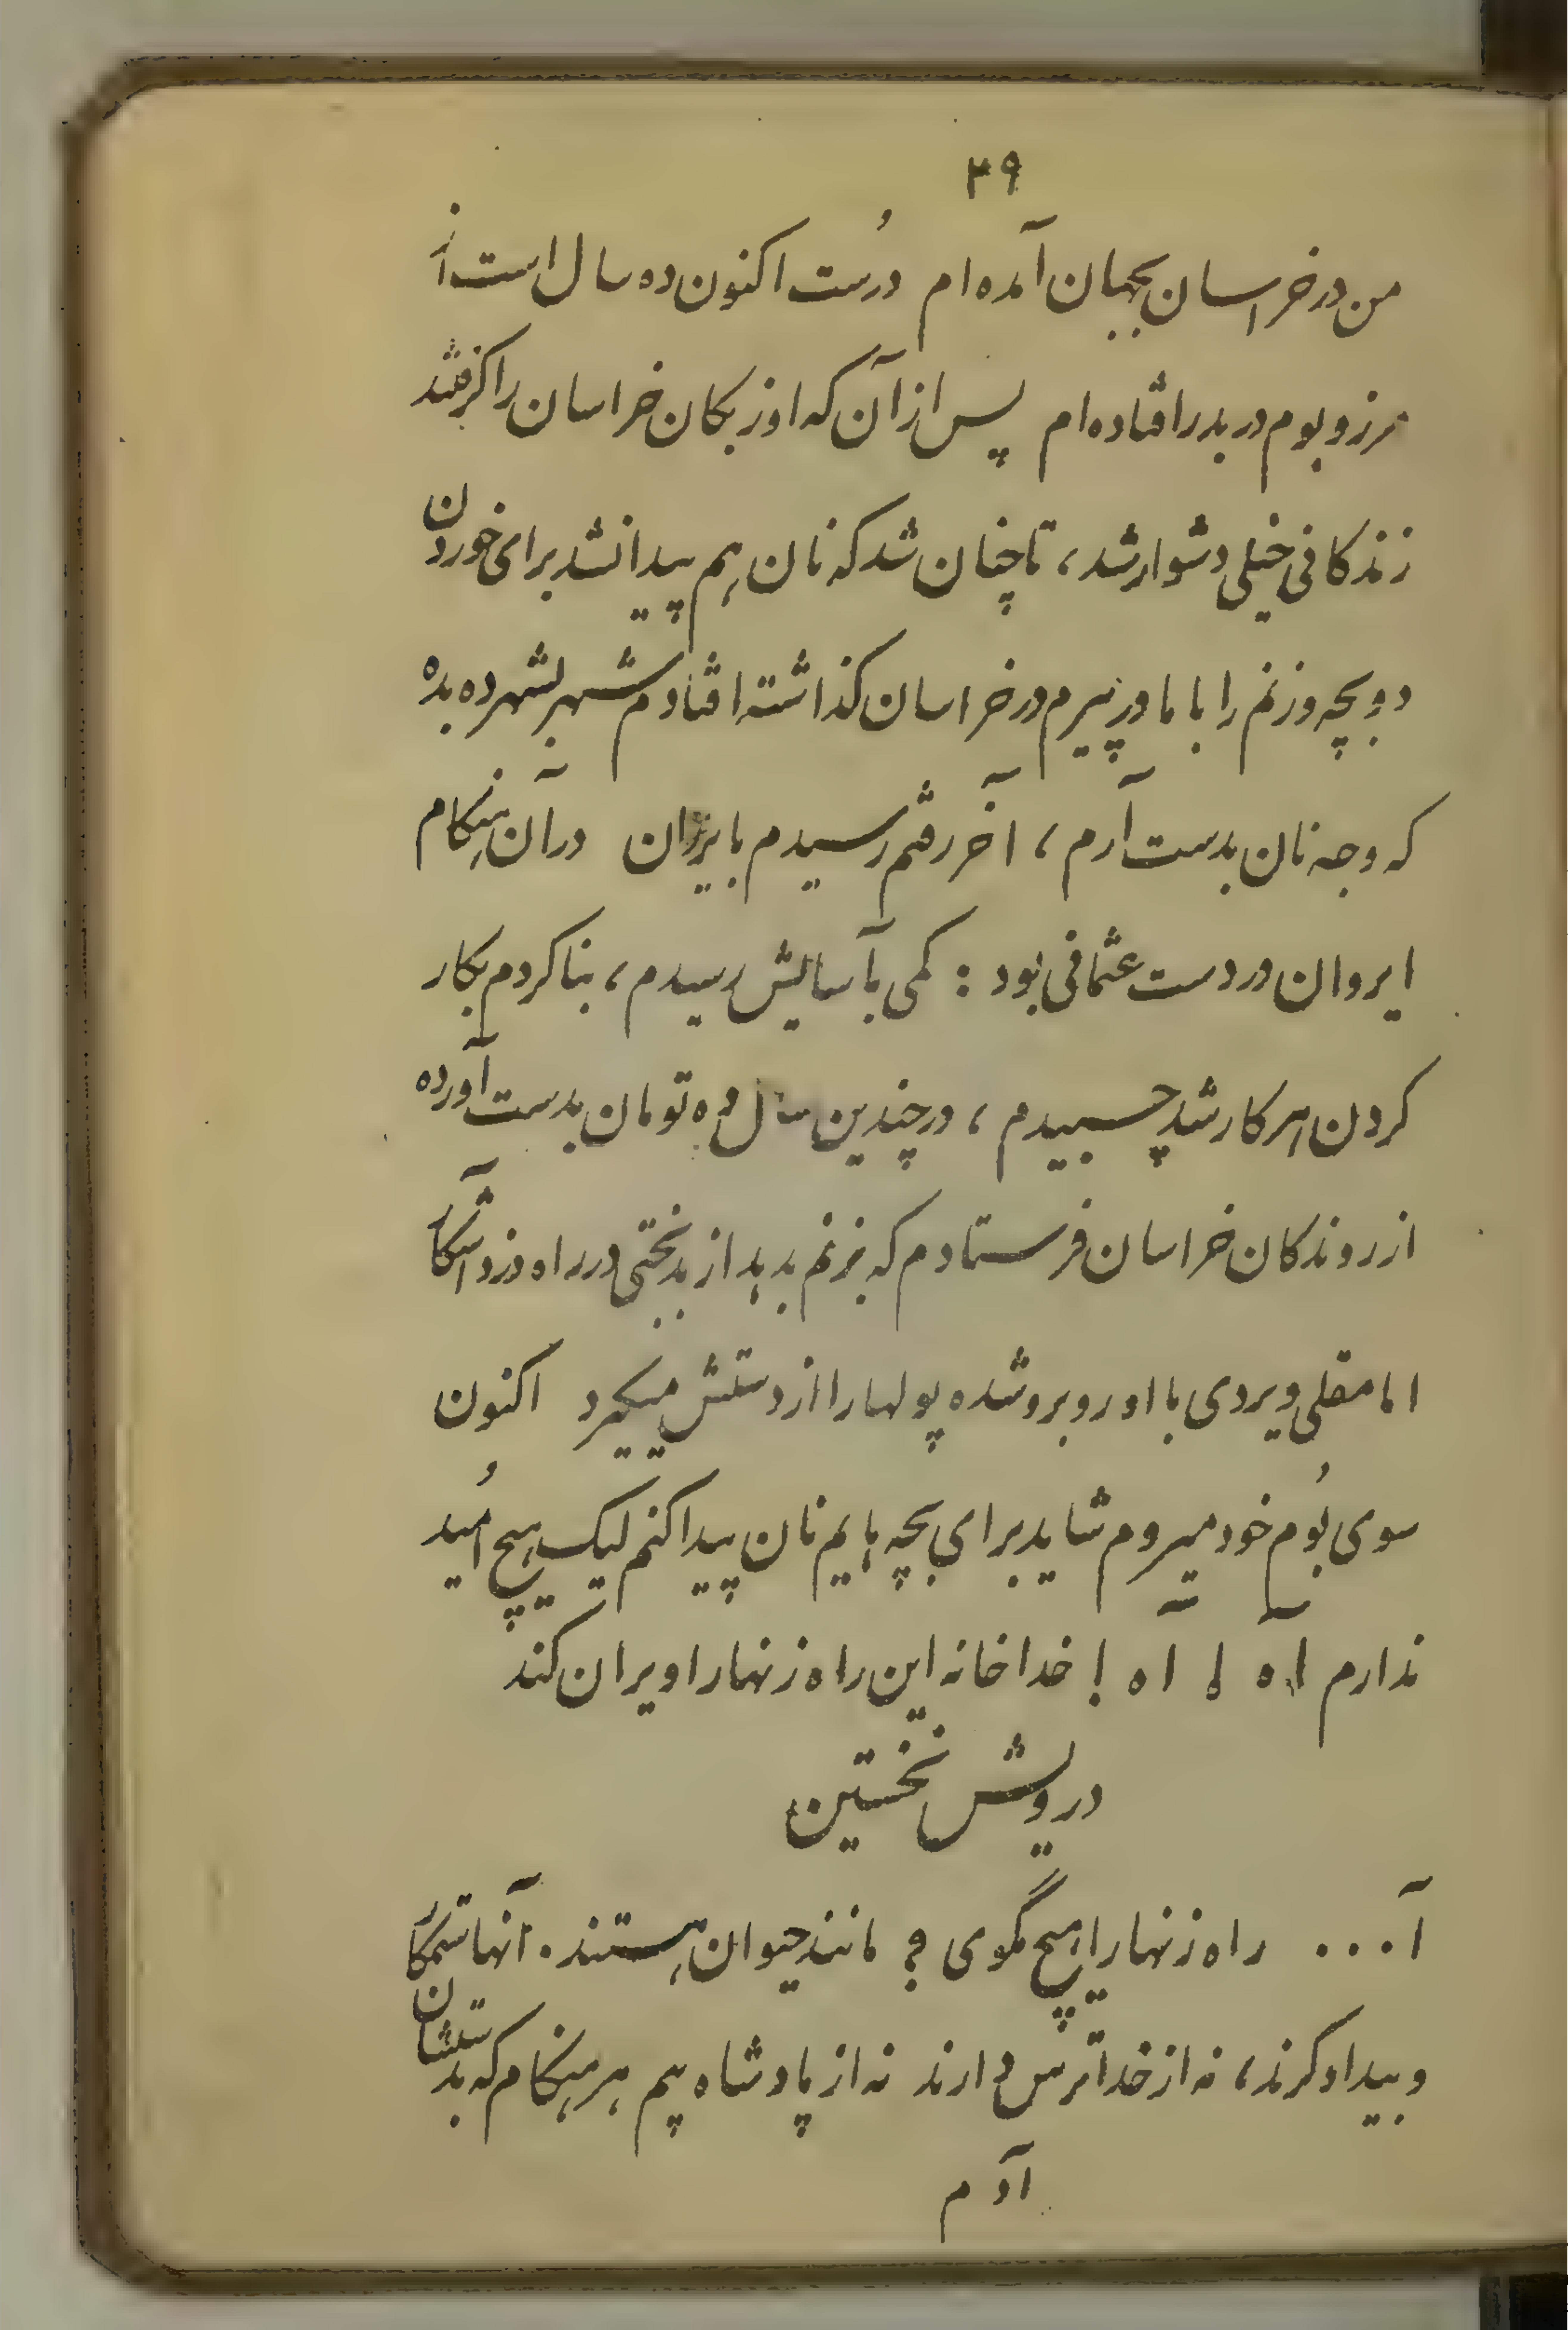 ۳۹
من در خراسان بجهان آمده‌ام درُست اکنون ده سال است از
مرز و بوم در بدر افتاده‌ام پس از آن که اوزبکان خراسان را کرفتند
زندکانی خیلی دشوار شد، تا چنان شد که نان هم پیدا نشد برای خوردن
دو بچه و زنم را با مادر پیرم در خراسان کذاشته افتادم شهر بشهر ده بده
که وجه نان بدست آرم، آخر رفتم رسیدم بایران در آن هنکام
ایروان در دست عثمانی بود : کمی بآسایش رسیدم، بنا کردم بکار
کردن هر کار شد چسبیدم، در چندین سال ده تومان بدست آورده
از روندکان خراسان فرستادم که بزنم بدهد از بدبختی در راه دزد آشکار
امامقلی ویردی با او روبرو شده پولها را از دستش میکیرد اکنون
سوی بُوم خود میروم شاید برای بچه هایم نان پیدا کنم لیک هیچ اُمید
ندارم آه ! آه ! خدا خانه این راه زنها را ویران کند
درویش نخستین
آ... راه زنها را هیچ مگوی ؟ مانند حیوان هستند . آنها ستمکار
و بیدادکرند، نه از خدا ترس دارند نه از پادشاه بیم هر هنکام که بدستشان
آدم